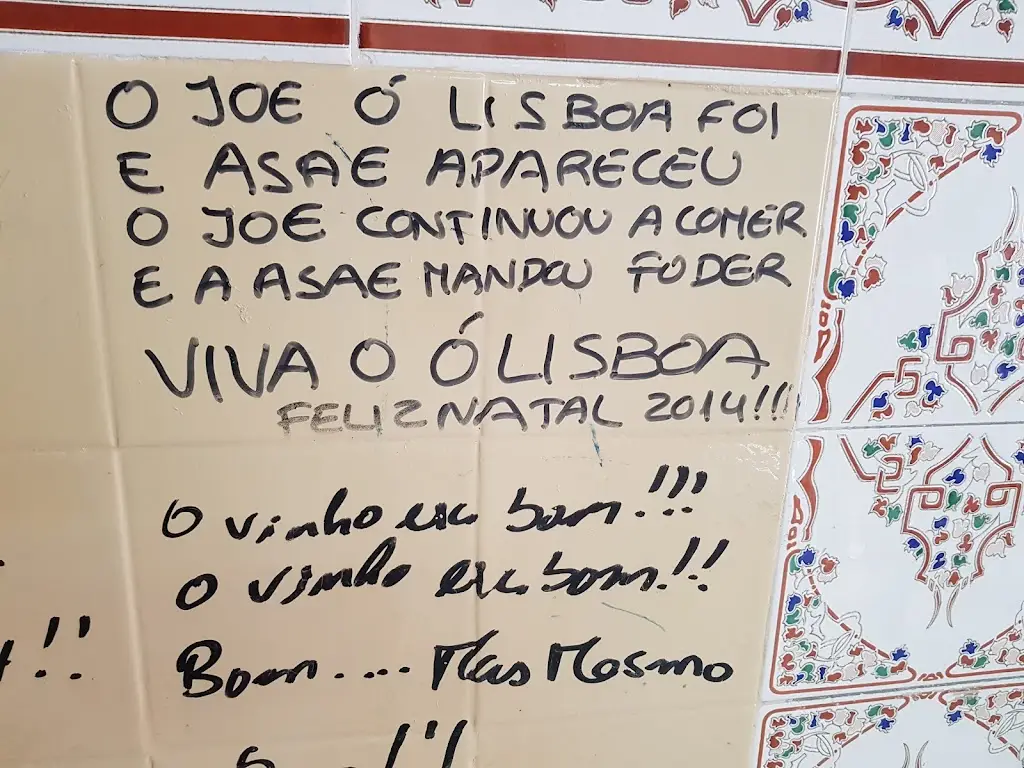 O JOE Ó LISBOA FOI
E ASAE APARECEU
O JOE CONTINUOU A COMER
E A ASAE MANDOU FODER
VIVA O ÓLISBOA
FELIZ NATAL 2014!!!
O vinho era bom!!!
O vinho era bom!!
!!
Bom.... Mas Mesmo